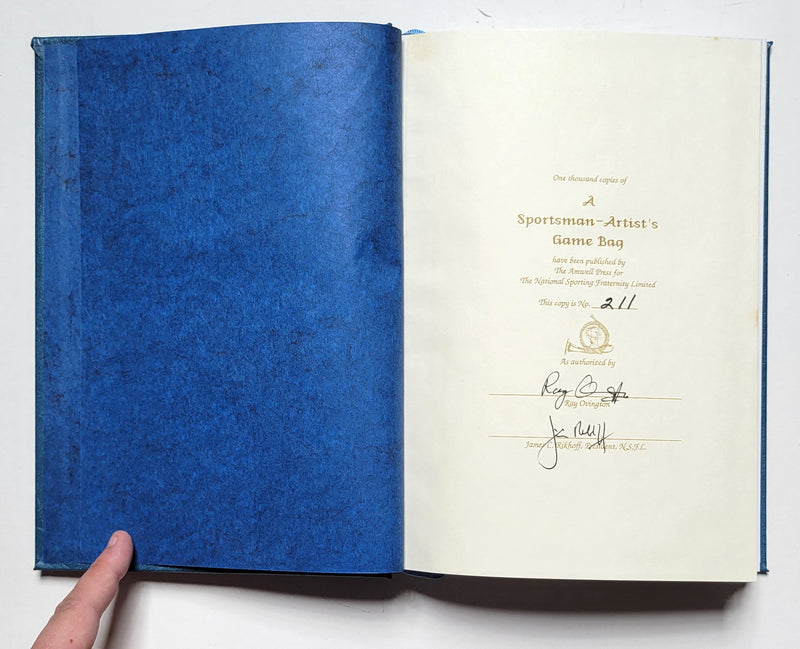 One thousand copies of
A
Sportsman-Artist's
Game Bag
have been published by
The Amwell Press for
The National Sporting Fraternity Limited
This copy is No. 211
As authorized by
Ray Ovington
James C. Rikhoff, President, N.S.F.L.